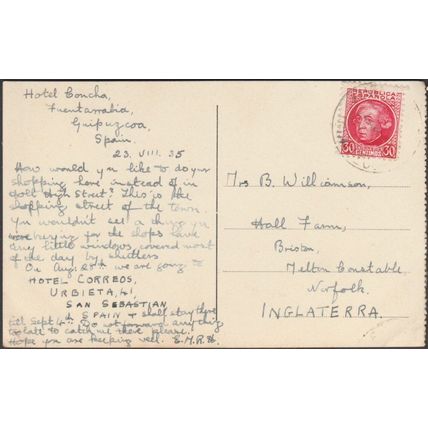 Hotel Concha,
Fuentarrabia,
Guipuzcoa,
Spain.
23. VIII. 35
How would you like to do your
shopping here instead of in
High Street? This is the
shopping street of the town.
You wouldn't see a thing you
were buying for the shops have
tiny little windows, covered most
of the day by shutters
On Aug. 28th we are going to
HOTEL CORREOS,
URBIETA, 41,
SAN SEBASTIAN
SPAIN & shall stay there
till Sept 4th. Do not forward anything
to late to catch me there please.
Hope you are keeping well. E.M.R.
REPUBLICA
ESPAÑOLA
30 CENTIMOS 30
Mrs B. Williamson,
Hall Farm,
Briston,
Melton Constable
Norfolk.
INGLATERRA.